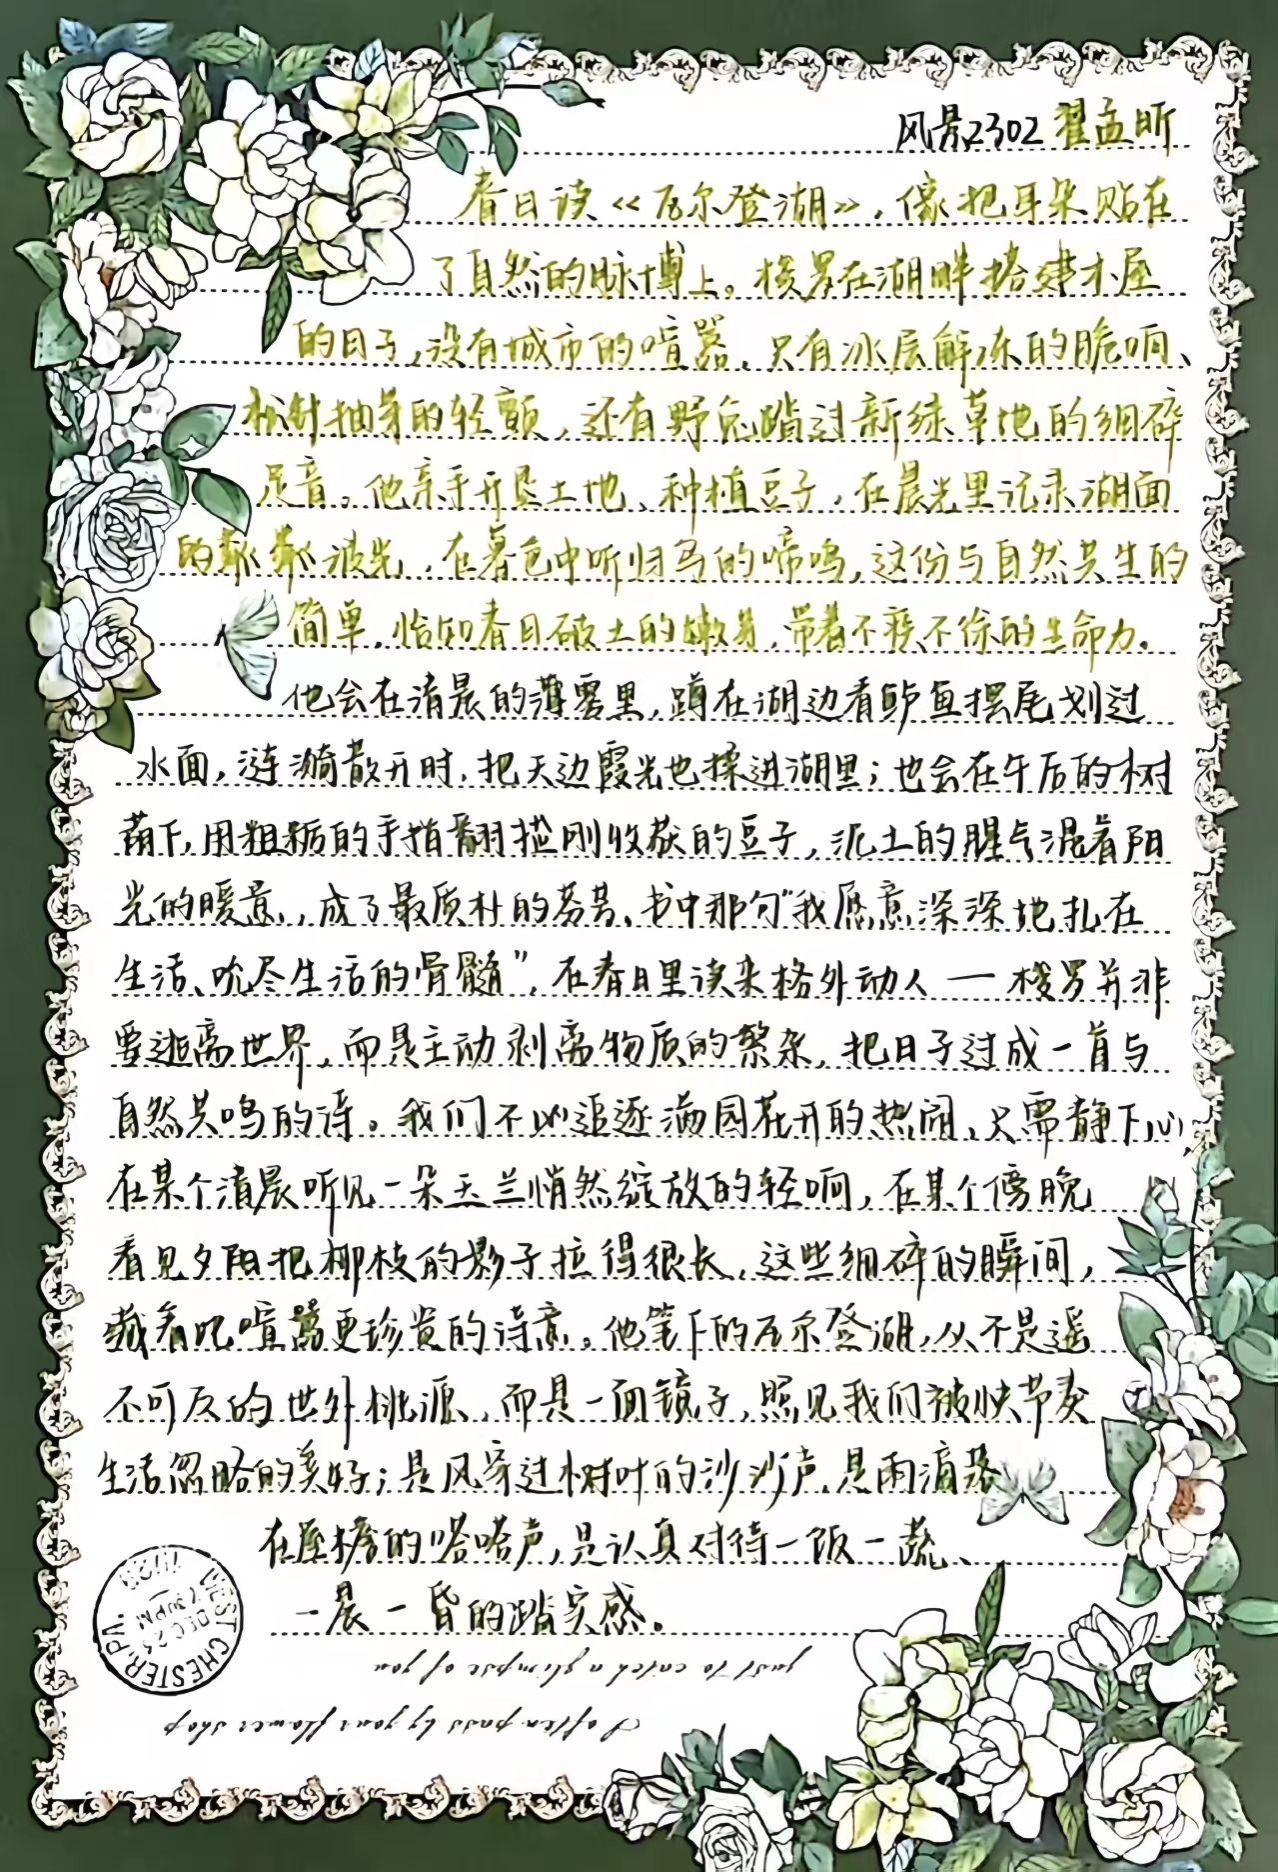 风景2302 翟孟昕
春日读《瓦尔登湖》，像把耳朵贴在
了自然的脉搏上。梭罗在湖畔搭建木屋
的日子，没有城市的喧嚣，只有冰层解冻的脆响、
松针抽芽的轻颤，还有野兔踏过新绿草地的细碎
足音。他亲手开垦土地、种植豆子，在晨光里记录湖面
的粼粼波光，在暮色中听归鸟的啼鸣，这份与自然共生的
简单，恰如春日破土的嫩芽，带着不疾不徐的生命力。
他会在清晨的薄雾里，蹲在湖边看鲈鱼摆尾划过
水面，涟漪散开时，把天边霞光也揉进湖里；也会在午后的树
荫下，用粗粝的手指翻捡刚收获的豆子，泥土的腥气混着阳
光的暖意，成了最质朴的芬芳。书中那句“我愿意深深地扎在
生活、吮尽生活的骨髓”，在春日里读来格外动人 — 梭罗并非
要逃离世界，而是主动剥离物质的繁杂，把日子过成一首与
自然共鸣的诗。我们不必追逐满园花开的热闹，只需静下心
在某个清晨听见一朵玉兰悄然绽放的轻响，在某个傍晚
看见夕阳把柳枝的影子拉得很长，这些细碎的瞬间，
藏着比喧嚣更珍贵的诗意。他笔下的瓦尔登湖，从不是遥
不可及的世外桃源，而是一面镜子，照见我们被快节奏
生活忽略的美好；是风穿过树叶的沙沙声，是雨滴落
在屋檐的嗒嗒声，是认真对待一饭一蔬、
一晨一昏的踏实感。
WEST CHESTER, PA.
DEC 23
7 30 PM
just to catch a glimpse of you
I often pass by your flower shop